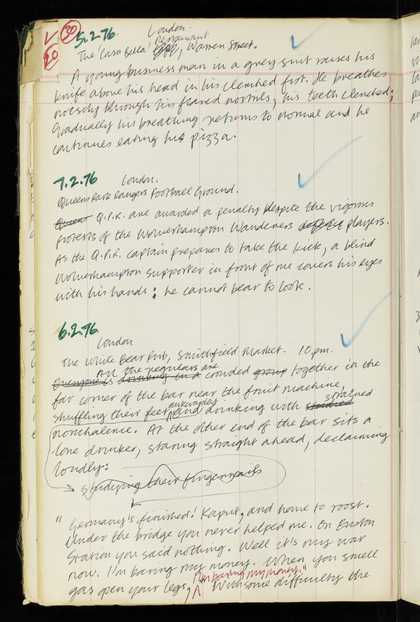 ✓ 30
20
5.2.76 London
Restaurant
The 'Casa Bella', Warren Street.
A young business man in a grey suit raises his
knife above his head in his clenched fist. He breathes
noisely through his flared nostrils, his teeth clenched;
Gradually his breathing returns to normal and he
continues eating his pizza.
7.2.76 London.
Queens Park Rangers Football Ground.
Q.P.R. are awarded a penalty despite the vigorous
protests of the Wolverhampton Wanderers players.
As the Q.P.R. captain prepares to take the kick, a blind
Wolverhampton supporter in front of me covers his eyes
with his hands; he cannot bear to look.
6.2.76
London
The White Bear Pub, Smithfield Market. 10 p.m.
All the regulars are
drinking in a crowded group together in the
far corner of the bar near the fruit machine,
awkwardly strained
shuffling their feet and drinking with
nonchalence. At the other end of the bar sits a
lone drinker, staring straight ahead, declaiming
loudly:
→ studying their fingernails
"Germany's finished! Kaput, and home to roost.
Under the bridge you never helped me. On Euston
Station you said nothing. Well it's my war
now. I'm having my money. When you smell
gas open your legs, I'm having my money."
With some difficulty the